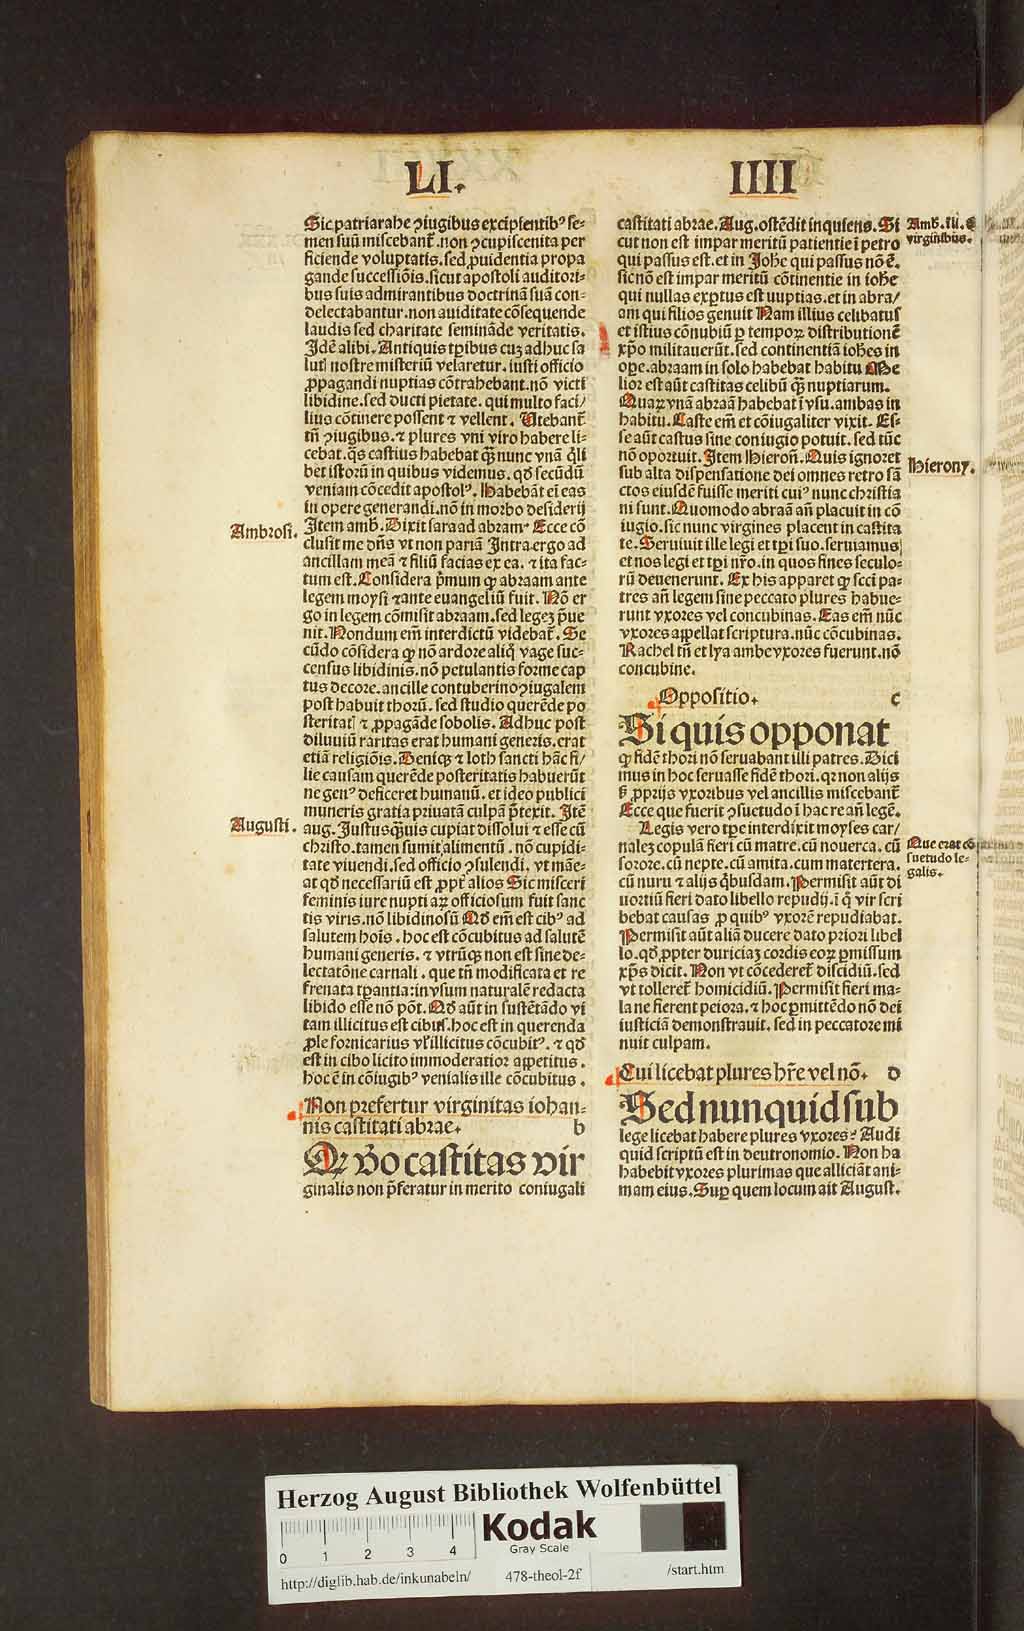 LI.
IIII
Sic patriarahe ꝯiugibus excipientibꝰ se-
men suū miscebant᷑. non ꝯcupiscenita per
ficiende voluptatis. sed ꝓuidentia propa
gande successiōis. sicut apostoli auditori-
bus suis admirantibus doctrinā suā con-
delectabantur. non auiditate cōsequende
laudis sed charitate semināde veritatis.
Idē alibi. Antiquis tꝑibus cuꝫ adhuc sa
lutꝭ nostre misteriū velaretur. iusti officio
ꝓpagandi nuptias cōtrahebant. nō victi
libidine. sed ducti pietate. qui multo faci/
lius cōtinere possent ⁊ vellent. Utebant᷑
tn̄ ꝯiugibus. ⁊ plures vni viro habere li-
cebat. q̄s castius habebat qꝫ̄ nunc vnā q̄li
bet istorū in quibus videmus. qd̄ secūdū
veniam cōcedit apostolꝰ. Habebāt eī eas
in opere generandi. nō in morbo desiderij
Ambrosi.
Item amb̄. Dixit sara ad abram. Ecce cō
clusit me dn̄s vt non pariā Intra ergo ad
ancillam meā ⁊ filiū facias ex ea. ⁊ ita fac-
tum est. Considera p̄mum ꝙ abraam ante
legem moysi ⁊ ante euangeliū fuit. Nō er
go in legem cōmisit abraam. sed legeꝫ p̄ue
nit. Nondum em̄ interdictū videbat᷑. Se
cūdo cōsidera ꝙ nō ardore aliq̇ vage suc-
census libidinis. nō petulantis forme cap
tus decore. ancille contuberino ꝯiugalem
post habuit thorū. sed studio querēde po
steritatꝭ ⁊ ꝓpagāde sobolis. Adhuc post
diluuiū raritas erat humani generis. erat
etiā religiōis. Deniqꝫ ⁊ loth sancti hāc fi/
lie causam querēde posteritatis habuerūt
ne genꝰ deficeret humanū. et ideo publici
muneris gratia priuatā culpā p̄texit. Itē
Augusti.
aug. Iustus qꝫ̄uis cupiat dissolui ⁊ esse cū
christo. tamen sumit alimentū. nō cupidi-
tate viuendi. sed officio ꝯsulendi. vt māe-
at qd̄ necessariū est ꝓpt᷑ alios Sic misceri
feminis iure nupti aꝝ officiosum fuit sanc
tis viris. nō libidinosū Qd̄ em̄ est cibꝰ ad
salutem hoīs. hoc est cōcubitus ad salutē
humani generis. ⁊ vtrūqꝫ non est sine de-
lectatōne carnali. que tn̄ modificata et re
frenata tꝑantia: in vsum naturalē redacta
libido esse nō pōt. Qd̄ aūt in sustētādo vi
tam illicitus est cibus. hoc est in querenda
ꝓle fornicarius vl̕ illicitus cōcubitꝰ. ⁊ qd̄
est in cibo licito immoderatior appetitus.
hoc ē in cōiugibꝰ venialis ille cōcubitus.
Non prefertur virginitas iohan-
nis castitati abrae. b
Qꝫ v̄o castitas vir
ginalis non p̄feratur in merito coniugali
castitati abrae. Aug. ostēdit inquiens. Si
Amb̄. li. ... virginibus.
cut non est impar meritū patientie ī petro
qui passus est. et in Johē qui passus nō ē.
sic nō est impar meritū cōtinentie in iohē
qui nullas exꝑtus est uuptias. et in abra/
am qui filios genuit Nam illius celibatus
et istius cōnubiū ꝑ tempoꝝ distributionē
xp̄o militauerūt. sed continentiā iohēs in
oꝑe. abraam in solo habebat habitu Me
lior est aūt castitas celibū qꝫ̄ nuptiarum.
Quaꝝ vnā abraā habebat ī vsu. ambas in
habitu. Caste em̄ et cōiugaliter vixit. Es-
se aūt castus sine coniugio potuit. sed tūc
nō oportuit. Item Hieron̄. Quis ignoret
Hierony.
sub alta dispensatione dei omnes retro sā
ctos eiusdē fuisse meriti cuiꝰ nunc christia
ni sunt. Quomodo abraā an̄ placuit in cō
iugio. sic nunc virgines placent in castita
te. Seruiuit ille legi et tꝑi suo. seruiamus
et nos legi et tꝑi nr̄o. in quos fines seculo-
rū deuenerunt. Ex his apparet ꝙ scti pa-
tres an̄ legem sine peccato plures habue-
runt vxores vel concubinas. Eas em̄ nūc
vxores appellat scriptura. nūc cōcubinas.
Rachel tn̄ et lya ambe vxores fuerunt. nō
concubine.
Oppositio. c
Si quis opponat
ꝙ fidē thori nō seruabant illi patres. Dici
mus in hoc seruasse fidē thori. qꝛ non alijs
ß ꝓprijs vxoribus vel ancillis miscebant᷑
Ecce que fuerit ꝯsuetudo ī hac re an̄ legē.
Legis vero tꝑe interdixit moyses car/
Que erat cō
suetudo le-
galis.
naleꝫ copulā fieri cū matre. cū nouerca. cū
sorore. cū nepte. cū amita. cum matertera.
cū nuru ⁊ alijs q̇busdam. Permisit aūt di
uortiū fieri dato libello repudij. ī q̇ vir scri
bebat causas ꝓ quibꝰ vxorē repudiabat.
Permisit aūt aliā ducere dato priori libel
lo. qd̄ ꝓpter duriciaꝫ cordis eoꝝ ꝑmissum
xp̄s dicit. Non vt cōcederet᷑ discidiū. sed
vt tolleret᷑ homicidiū. Permisit fieri ma-
la ne fierent peiora. ⁊ hoc ꝑmittēdo nō dei
iusticiā demonstrauit. sed in peccatore mi
nuit culpam.
Cui licebat plures hr̄e vel nō. d
Sed nunquid sub
lege licebat habere plures vxores? Audi
quid scriptū est in deutronomio. Non ha
habebit vxores plurimas que alliciāt ani-
mam eius. Suꝑ quem locum ait August.
Herzog August Bibliothek Wolfenbüttel
Kodak
Gray Scale
0 1 2 3 4
http://diglib.hab.de/inkunabeln/ 478-theol-2f /start.htm